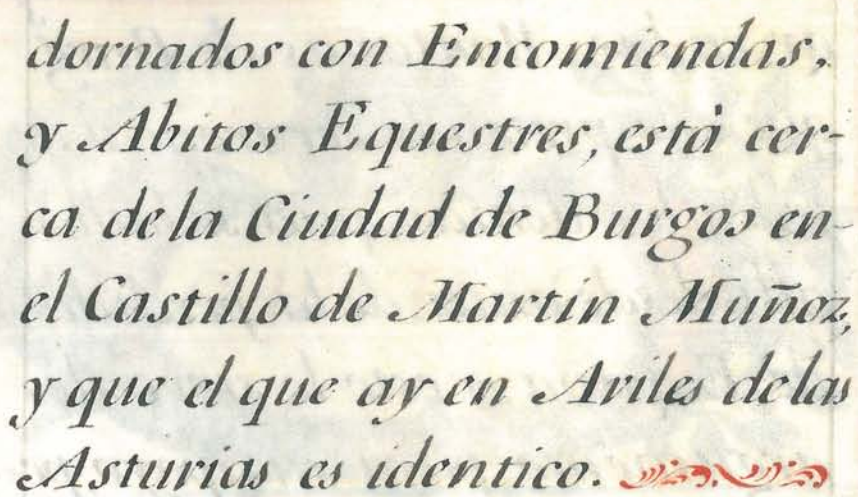 dornados con Encomiendas,
y Abitos Equestres, està cer-
ca de la Ciudad de Burgos en
el Castillo de Martin Muñoz,
y que el que ay en Aviles de las
Asturias es identico.